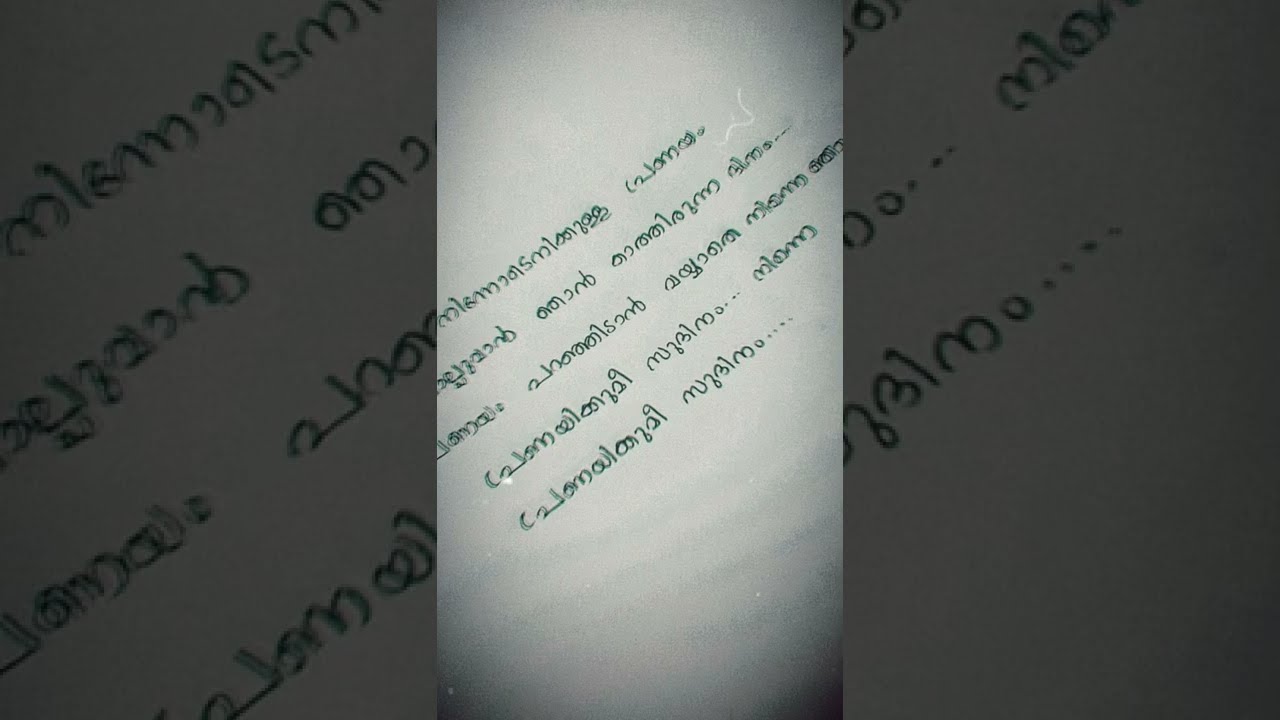 നിന്നോടെനിക്കുള്ള പ്രണയം
ഞാൻ കാത്തിരുന്ന ദിനം...
പറഞ്ഞിടാൻ വയ്യാതെ നിന്നെ
പ്രണയിക്കുമീ സുദിനം... നിന്നെ
പ്രണയിക്കുമീ സുദിനം.....